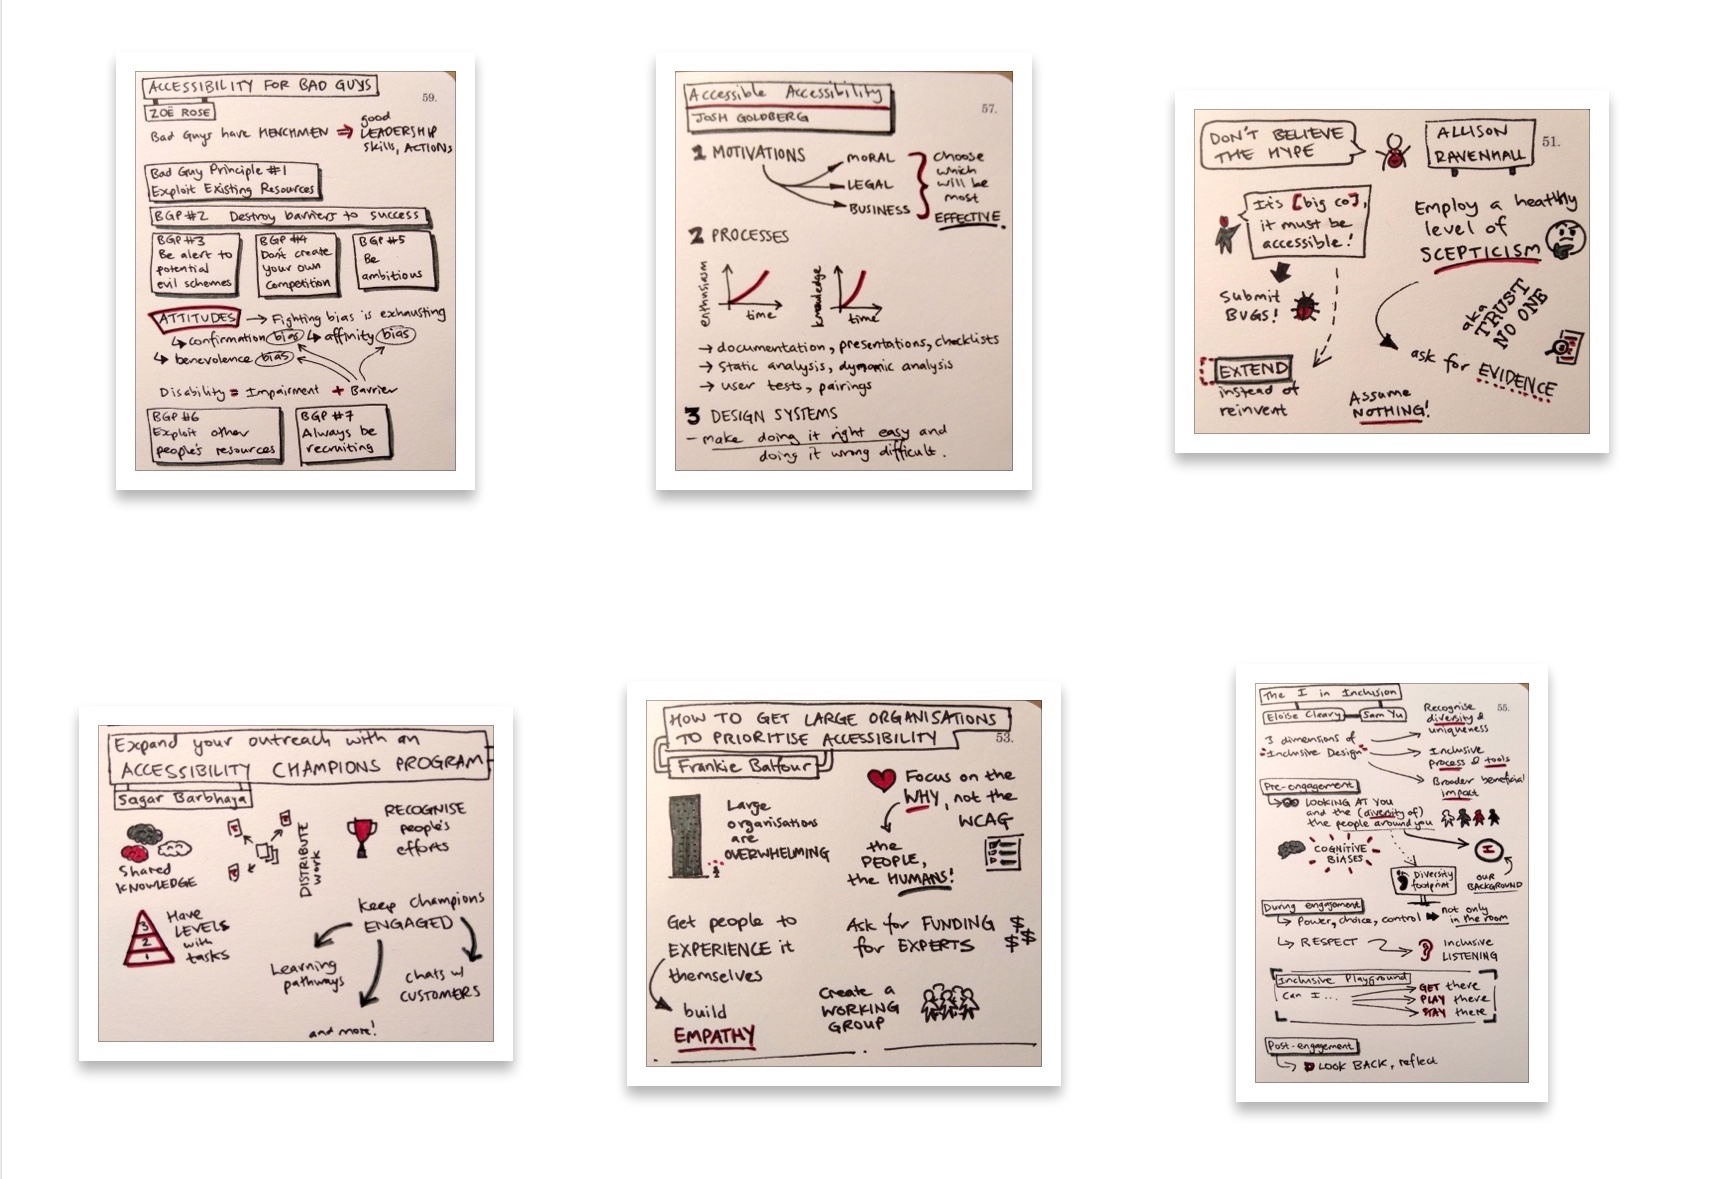 ACCESSIBILITY FOR BAD GUYS
59.
ZOË ROSE
Bad Guys have HENCHMEN ⇒ good LEADERSHIP skills, ACTIONS
Bad Guy Principle #1
Exploit Existing Resources
BGP #2 Destroy barriers to success
BGP #3
Be alert to
potential
evil schemes
BGP #4
Don't create
your own
competition
BGP #5
Be
ambitious
ATTITUDES → Fighting bias is exhausting
↳ confirmation bias ↳ affinity bias
↳ benevolence bias
Disability = Impairment + Barrier
BGP #6
Exploit other
people's resources
BGP #7
Always be
recruiting
Accessible Accessibility
JOSH GOLDBERG
57.
1 MOTIVATIONS
MORAL
LEGAL
BUSINESS
choose
which
will be
most
EFFECTIVE.
2 PROCESSES
enthusiasm
time
knowledge
time
→ documentation, presentations, checklists
→ static analysis, dynamic analysis
→ user tests, pairings
3 DESIGN SYSTEMS
- make doing it right easy and
doing it wrong difficult.
DON'T BELIEVE
THE HYPE
ALLISON
RAVENHALL
51.
It's [big co],
it must be
accessible!
Submit
BUGS!
EXTEND
instead of
reinvent
Employ a healthy
level of
SCEPTICISM
aka
TRUST
NO ONE
ask for EVIDENCE
Assume
NOTHING!
Expand your outreach with an
ACCESSIBILITY CHAMPIONS PROGRAM
Sagar Barbhaya
Shared
KNOWLEDGE
DISTRIBUTE
work
RECOGNISE
people's
efforts
3
2
1
Have
LEVELS
with
tasks
Keep champions
ENGAGED
Learning
pathways
chats w/
CUSTOMERS
and more!
HOW TO GET LARGE ORGANISATIONS
TO PRIORITISE ACCESSIBILITY
53.
Frankie Balfour
Large
organisations
are
OVERWHELMING
Focus on the
WHY, not the
WCAG
the
PEOPLE,
the HUMANS!
Get people to
EXPERIENCE it
themselves
build
EMPATHY
Ask for FUNDING
for EXPERTS
$ $ $ $
Create a
WORKING
GROUP
The I in Inclusion
Eloise Cleary
Sam Yu
55.
3 dimensions of
"Inclusive Design"
Recognise
diversity &
uniqueness
Inclusive
process & tools
Broader beneficial
impact
Pre-engagement
LOOKING AT YOU
and the (diversity of)
the people around you
COGNITIVE
BIASES
I
OUR
BACKGROUND
Diversity
footprint
During engagement
↳ Power, choice, control
not only
in the room
↳ RESPECT
Inclusive
LISTENING
Inclusive Playground
Can I...
GET there
PLAY there
STAY there
Post-engagement
LOOK BACK, reflect